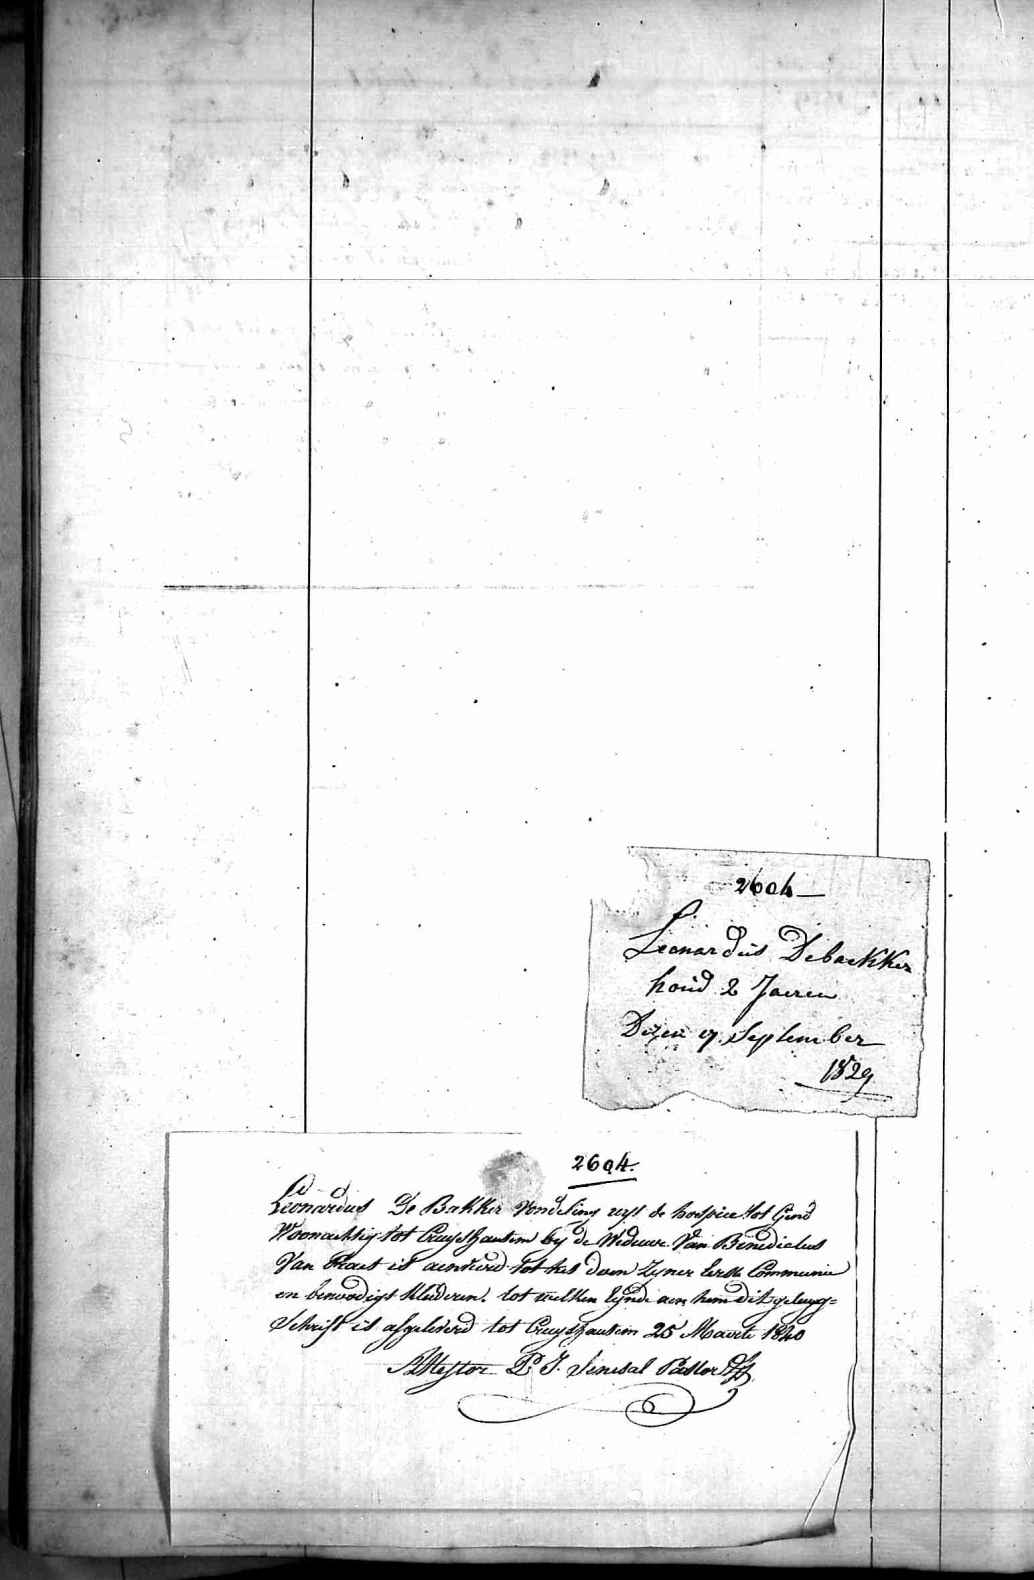 2604
Leonardus Debackker
houd 2 Jaeren
Dezen 17 September
1829
2604.
Leonardus De Bakker Vondeling uyt de hospice tot Gend
Woonachtig tot Cruyshautem by de Weduwe Van Benedictus
Van is aenveerd tot het doen Zyner Eerste Communie
en benoodigt kleederen. tot welken eynde aen hem dit getuyg=
Schrift is afgeleverd tot Cruyshautem 25 Maerte 1840
Attestor P. J. Sinesal Pastor